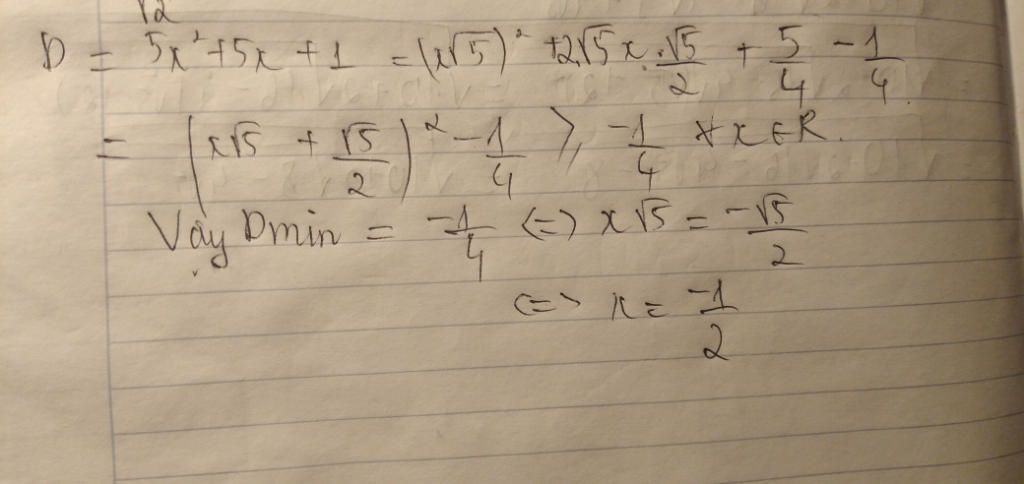 √2
D = 5x² + 5x + 1 = (x√5)² + 2√5x.√5/2 + 5/4 - 1/4
= (x√5 + √5/2)² - 1/4 ⩾ -1/4 ∀x ∈ R.
Vậy Dmin = -1/4 <=> x√5 = -√5/2
<=> x = -1/2